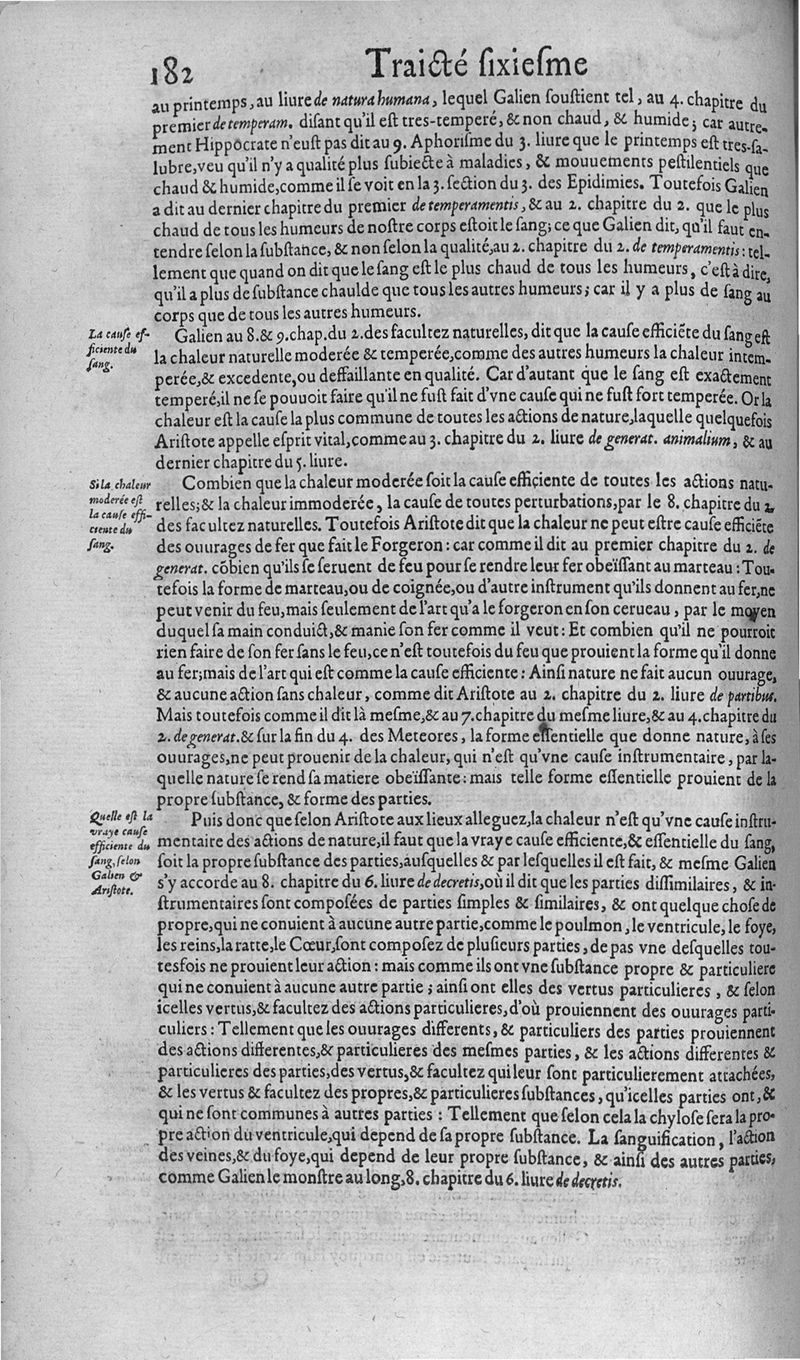 182
Traicté ſixieſme
au printemps, au liure de natura humana, lequel Galien ſouſtient tel, au 4. chapitre du
premier de temperam. diſant qu'il eſt tres-temperé, & non chaud, & humide; car autre-
ment Hippocrate n'euſt pas dit au 9. Aphoriſme du 3. liure que le printemps eſt tres-ſa-
lubre, veu qu'il n'y a qualité plus ſubiecte à maladies, & mouuements peſtilentiels que
chaud & humide, comme il ſe voit en la 3. ſection du 3. des Epidimies. Toutefois Galien
a dit au dernier chapitre du premier de temperamentis, & au 2. chapitre du 2. que le plus
chaud de tous les humeurs de noſtre corps eſtoit le ſang; ce que Galien dit, qu'il faut en-
tendre ſelon la ſubſtance, & non ſelon la qualité, au 2. chapitre du 2. de temperamentis: tel-
lement que quand on dit que le ſang eſt le plus chaud de tous les humeurs, c'eſt à dire,
qu'il a plus de ſubſtance chaulde que tous les autres humeurs; car il y a plus de ſang au
corps que de tous les autres humeurs.
La cauſe ef-
ficiente du
ſang.
Galien au 8. & 9. chap. du 2. des facultez naturelles, dit que la cauſe efficiẽte du ſang eſt
la chaleur naturelle moderée & temperée, comme des autres humeurs la chaleur intem-
perée, & excedente, ou deffaillante en qualité. Car d'autant que le ſang eſt exactement
temperé, il ne ſe pouuoit faire qu'il ne fuſt fait d'vne cauſe qui ne fuſt fort temperée. Or la
chaleur eſt la cauſe la plus commune de toutes les actions de nature, laquelle quelquefois
Ariſtote appelle eſprit vital, comme au 3. chapitre du 2. liure de generat. animalium, & au
dernier chapitre du 5. liure.
Si la chaleur
moderée eſt
la cauſe effi-
ciente du
ſang.
Combien que la chaleur moderée ſoit la cauſe efficiente de toutes les actions natu-
relles; & la chaleur immoderée, la cauſe de toutes perturbations, par le 8. chapitre du 2.
des facultez naturelles. Toutefois Ariſtote dit que la chaleur ne peut eſtre cauſe efficiẽte
des ouurages de fer que fait le Forgeron: car comme il dit au premier chapitre du 2. de
generat. cõbien qu'ils ſe ſeruent de feu pour ſe rendre leur fer obeïſſant au marteau: Tou-
tefois la forme de marteau, ou de coignée, ou d'autre inſtrument qu'ils donnent au fer, ne
peut venir du feu, mais ſeulement de l'art qu'a le forgeron en ſon cerueau, par le moyen
duquel ſa main conduict, & manie ſon fer comme il veut: Et combien qu'il ne pourroit
rien faire de ſon fer ſans le feu, ce n'eſt toutefois du feu que prouient la forme qu'il donne
au fer; mais de l'art qui eſt comme la cauſe efficiente: Ainſi nature ne fait aucun ouurage,
& aucune action ſans chaleur, comme dit Ariſtote au 2. chapitre du 2. liure de partibus.
Mais toutefois comme il dit là meſme, & au 7. chapitre du meſme liure, & au 4. chapitre du
2. de generat. & ſur la fin du 4. des Meteores, la forme eſſentielle que donne nature, à ſes
ouurages, ne peut prouenir de la chaleur, qui n'eſt qu'vne cauſe inſtrumentaire, par la-
quelle nature ſe rend ſa matiere obeïſſante: mais telle forme eſſentielle prouient de la
propre ſubſtance, & forme des parties.
Quelle eſt la
vraye cauſe
efficiente du
ſang, ſelon
Galien &
Ariſtote.
Puis donc que ſelon Ariſtote aux lieux alleguez, la chaleur n'eſt qu'vne cauſe inſtru-
mentaire des actions de nature, il faut que la vraye cauſe efficiente, & eſſentielle du ſang,
ſoit la propre ſubſtance des parties, auſquelles & par leſquelles il eſt fait, & meſme Galien
s'y accorde au 8. chapitre du 6. liure de decretis, où il dit que les parties diſſimilaires, & in-
ſtrumentaires ſont compoſées de parties ſimples & ſimilaires, & ont quelque choſe de
propre, qui ne conuient à aucune autre partie, comme le poulmon, le ventricule, le foye,
les reins, la ratte, le Cœur, ſont compoſez de pluſieurs parties, de pas vne deſquelles tou-
tesfois ne prouient leur action: mais comme ils ont vne ſubſtance propre & particuliere
qui ne conuient à aucune autre partie; ainſi ont elles des vertus particulieres, & ſelon
icelles vertus, & facultez des actions particulieres, d'où prouiennent des ouurages parti-
culiers: Tellement que les ouurages differents, & particuliers des parties prouiennent
des actions differentes, & particulieres des meſmes parties, & les actions differentes &
particulieres des parties, des vertus, & facultez qui leur ſont particulierement attachées,
& les vertus & facultez des propres, & particulieres ſubſtances, qu'icelles parties ont, &
qui ne ſont communes à autres parties: Tellement que ſelon cela la chyloſe ſera la pro-
pre action du ventricule, qui depend de ſa propre ſubſtance. La ſanguification, l'action
des veines, & du foye, qui depend de leur propre ſubſtance, & ainſi des autres parties,
comme Galien le monſtre au long, 8. chapitre du 6. liure de decretis.